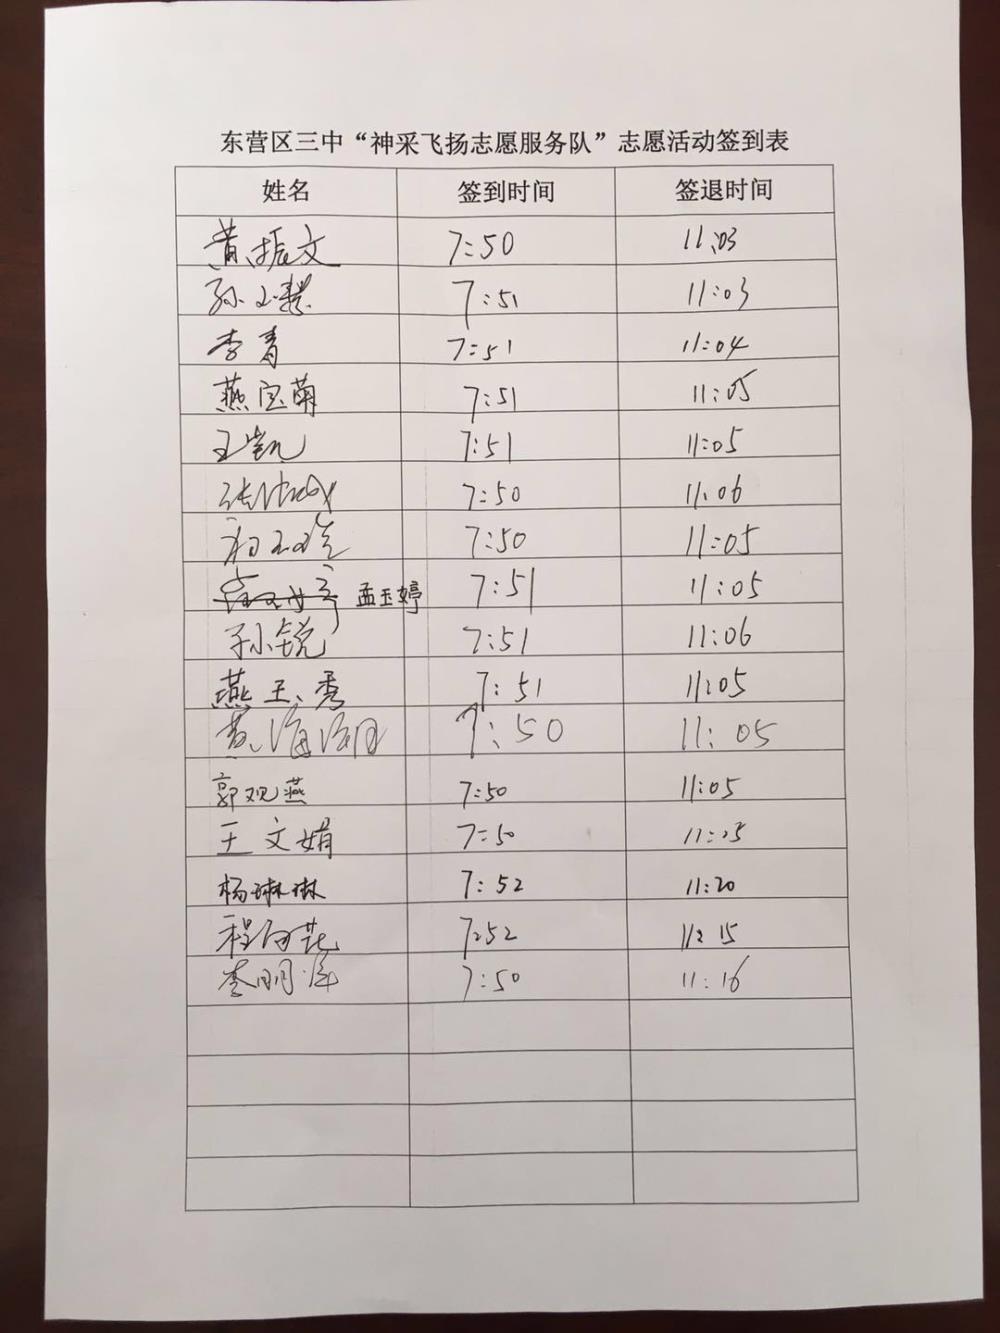 东营区三中“神采飞扬志愿服务队”志愿活动签到表
姓名 签到时间 签退时间
黄振文 7:50 11:03
孙 7:51 11:03
李青 7:51 11:04
燕宝菊 7:51 11:05
王凯 7:51 11:05
张 7:50 11:06
7:50 11:05
孟玉婷 7:51 11:05
孙锐 7:51 11:06
燕玉秀 7:51 11:05
黄海 7:50 11:05
郭观燕 7:50 11:05
王文娟 7:50 11:05
杨琳琳 7:52 11:20
程 7:52 11:15
李明 7:50 11:16